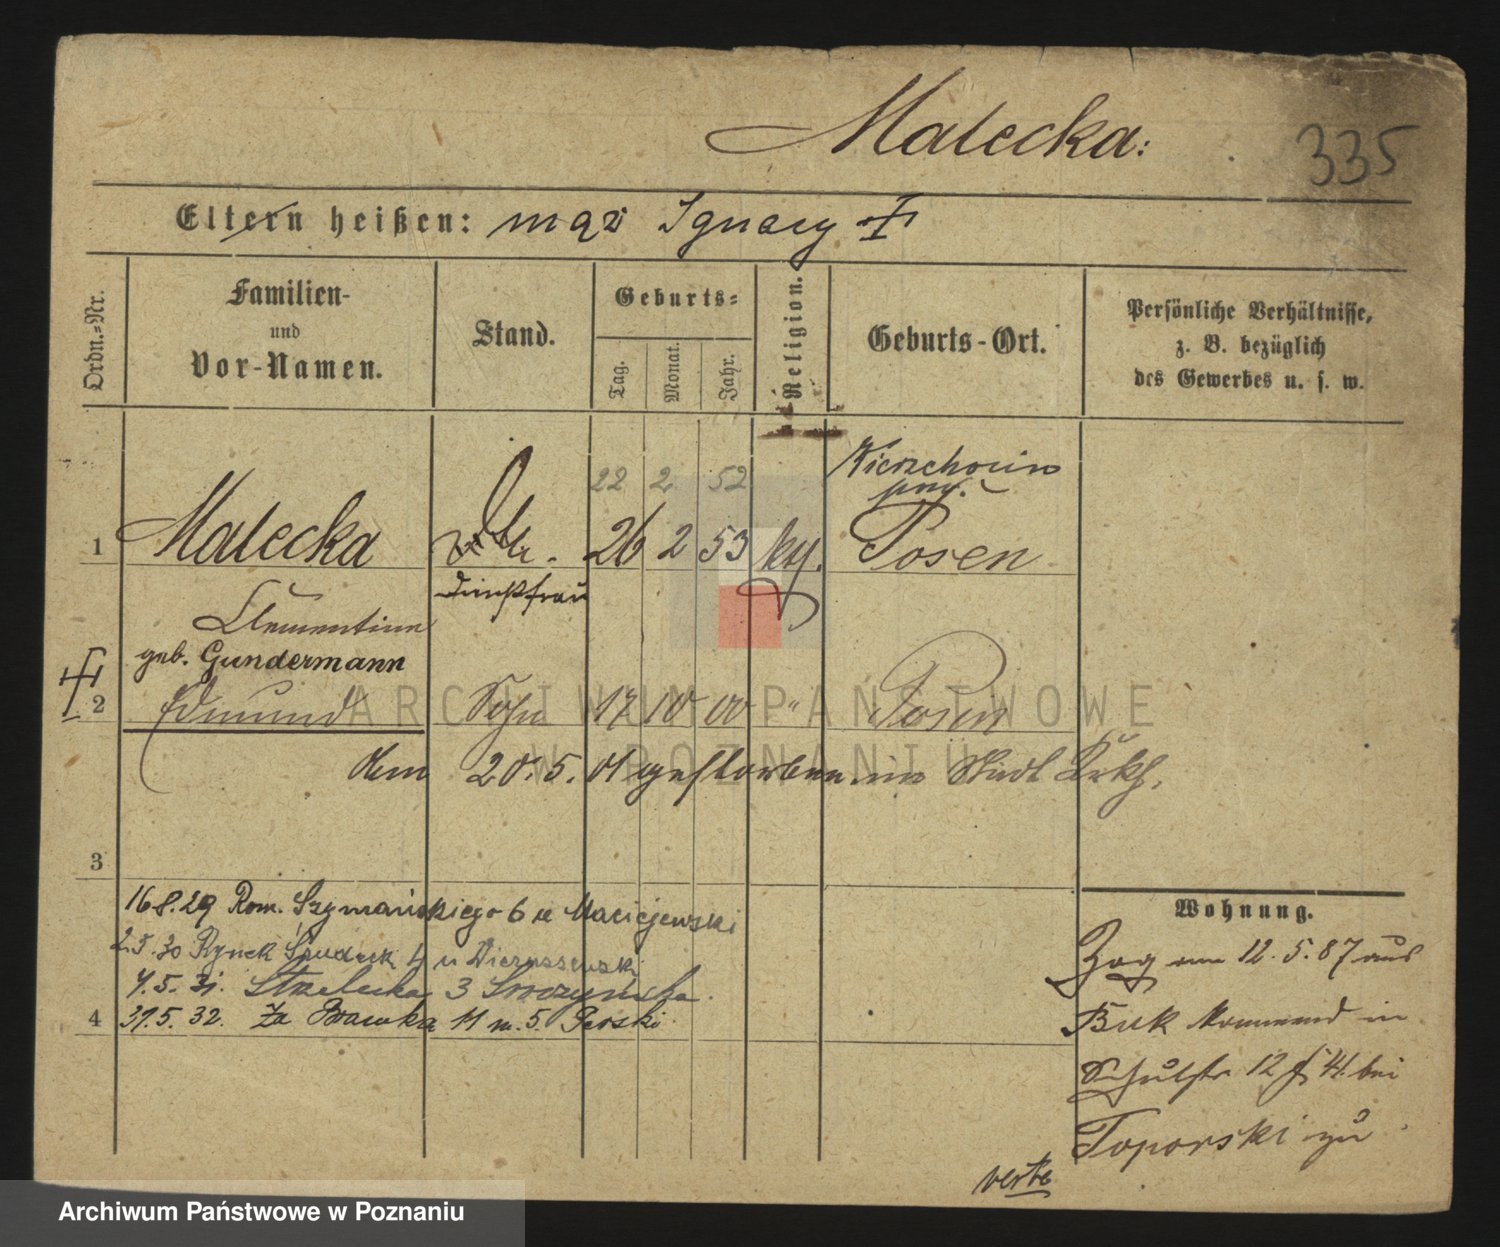 Malecka:
335
Eltern heißen: mąż Ignacy †
Ordn.-Nr.
Familien-
und
Vor-Namen.
Stand.
Geburts-
Tag.
Monat.
Jahr.
Religion.
Geburts-Ort.
Persönliche Verhältnisse,
z. B. bezüglich
des Gewerbes u. s. w.
22 2 52 Wierzchocin
1 Malecka 26 2 53 kth. Posen
Dienstfrau
Clementine
geb. Gundermann
2 Edmund Sohn 17 10 00 " Posen
Am 20. 5. 01 gestorben im Stadt Krkh.
3
16.8.29 Rom. Szymańskiego 6 u Maciejewski
2.5.30 Rynek Śródecki 4 u
4.5.31. Strzelecka 3
4 31.5.32. Za Bramką 11 m. 5.
Wohnung.
Zog am 12. 5. 87 aus
Buk kommend in
Schulstr. 12 bei
Toporski zu
ARCHIWUM PAŃSTWOWE
W POZNANIU
Archiwum Państwowe w Poznaniu